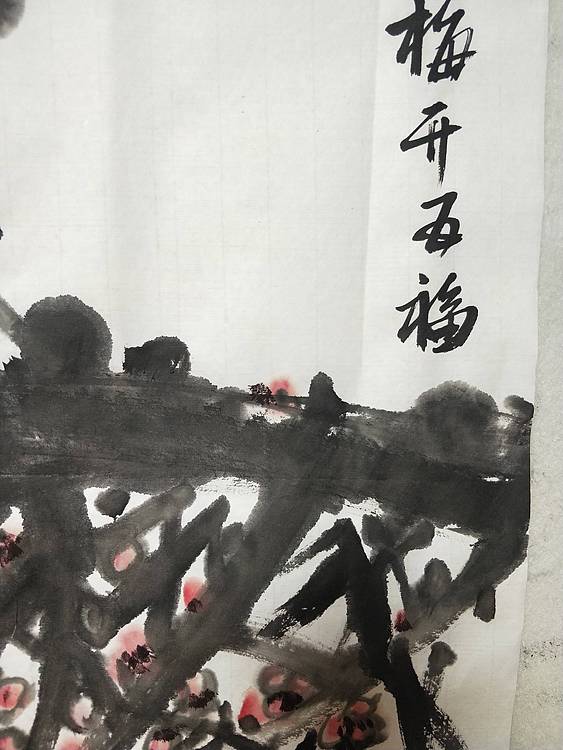 梅开五福